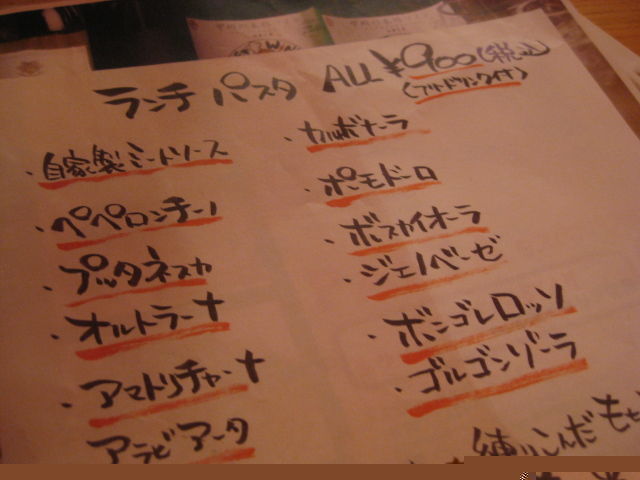 ランチ パスタ ALL ¥900(税込)
・自家製ミートソース
・ペペロンチーノ
・プッタネスカ
・オルトラーナ
・アマトリチャーナ
アラビアータ
・カルボナーラ
・ポモドーロ
・ボスカイオーラ
・ジェノベーゼ
・ボンゴレロッソ
・ゴルゴンゾーラ
練りこんだ